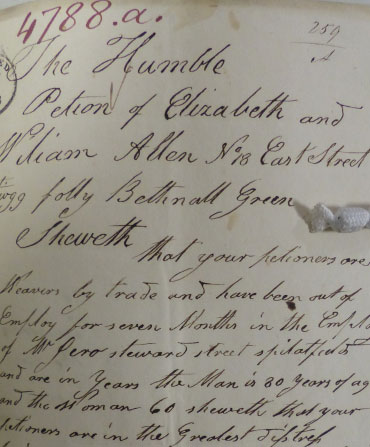 4788.a.
259
A
The Humble
Petion of Elizabeth and
William Allen No 18 East Street
folly Bethnall Green
Sheweth
that your petioners are
Weavers by trade and have been out of
Employ for seven Months in the Emplo
of Mr Jero steward street spitalfields
and are in Years the Man is 80 Years of ag
and the Woman 60 sheweth that your
petioners are in the Greatest distress